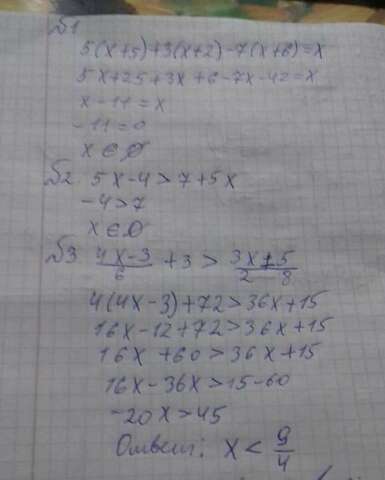 №1
5(x+5)+3(x+2)-7(x+6)=x
5x+25+3x+6-7x-42=x
x-11=x
-11=0
x∈∅
№2 5x-4>7+5x
-4>7
x∈∅
№3 4x-3/6 + 3 > 3x/2 + 5/8
4(4x-3)+72>36x+15
16x-12+72>36x+15
16x+60>36x+15
16x-36x>15-60
-20x>45
Ответ: x < 9/4